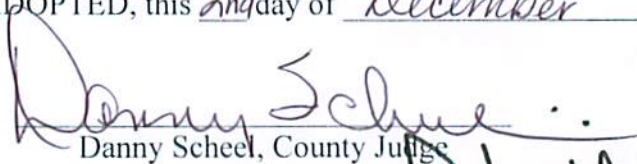 ADOPTED, this 2nd day of December
Danny Scheel
Danny Scheel, County Judge